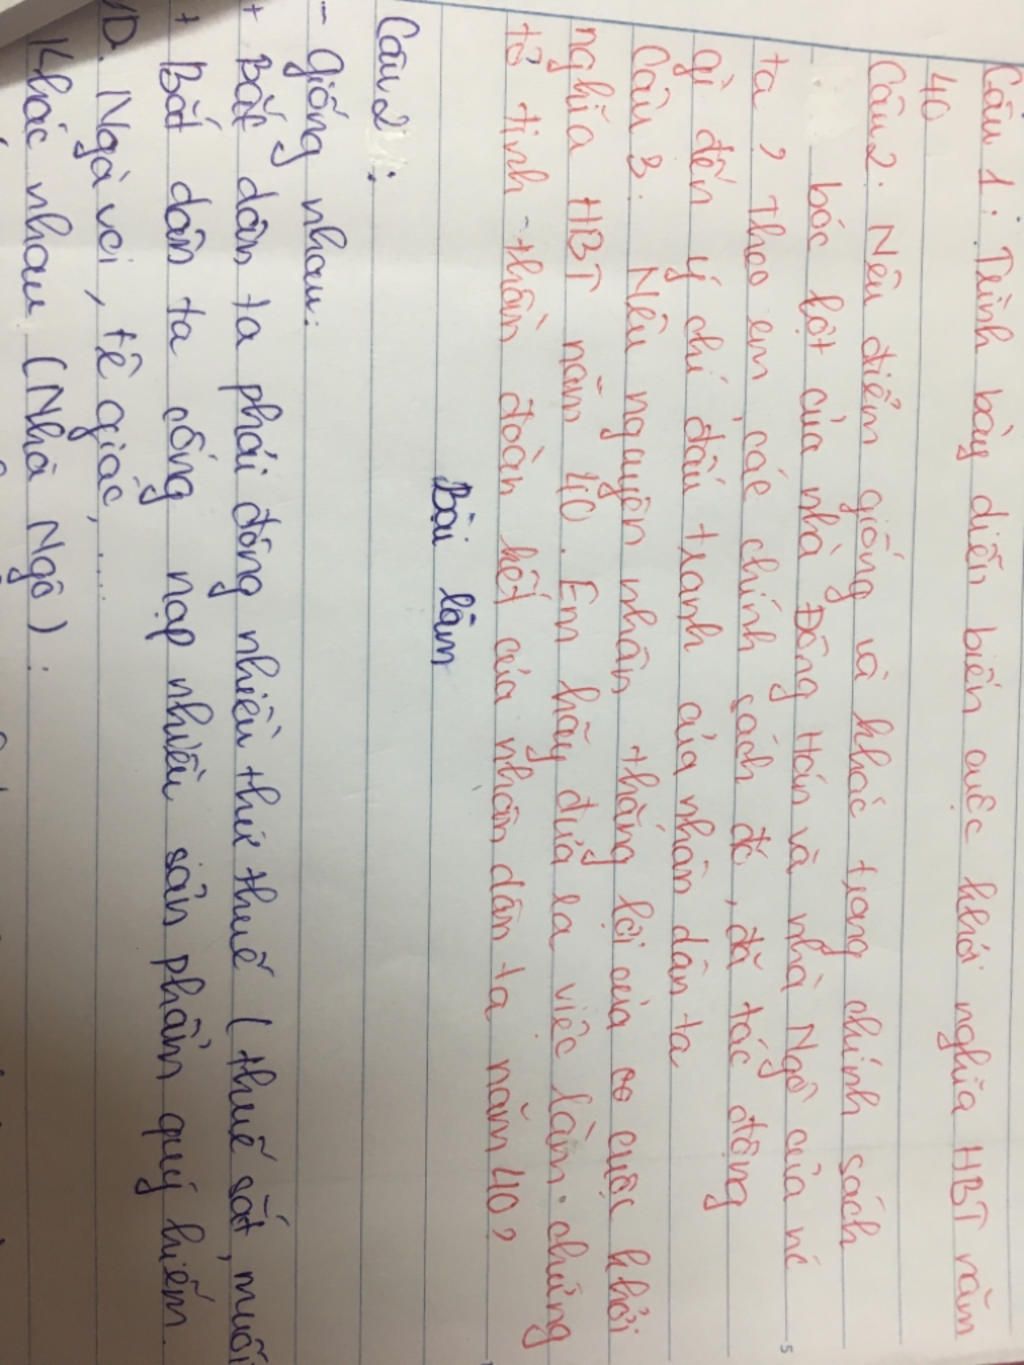 Câu 1: Trình bày diễn biến cuộc khởi nghĩa HBT năm
40
Câu 2. Nêu điểm giống và khác trong chính sách
bóc lột của nhà Đông Hán và nhà Ngô của nc
ta? Theo em, các chính sách đó, đã tác động
gì đến ý chí đấu tranh của nhân dân ta
Câu 3. Nêu nguyên nhân thắng lợi của cuộc khởi
nghĩa HBT năm 40. Em hãy đưa ra việc làm chứng
tỏ tinh thần đoàn kết của nhân dân ta năm 40?
Bài làm
Câu 2:
- Giống nhau:
+ Bắt dân ta phải đóng nhiều thứ thuế (thuế sắt, muối
+ Bắt dân ta cống nạp nhiều sản phẩm quý hiếm.
VD. Ngà voi, tê giác,...
Khác nhau (Nhà Ngô):